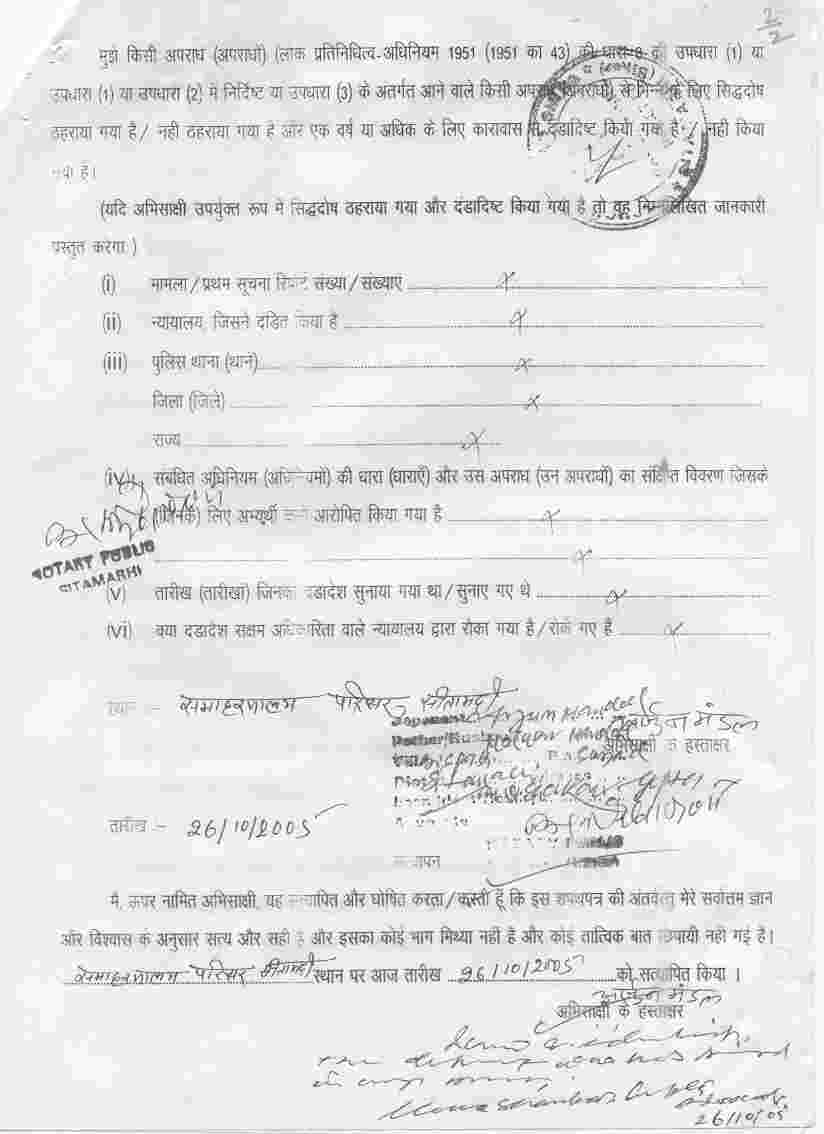 2/2
मुझे किसी अपराध (अपराधों) (लाक प्रतिनिधित्व-अधिनियम 1951 (1951 का 43) की धारा-8 की उपधारा (1) या
उपधारा (1) या उपधारा (2) में निर्दिष्ट या उपधारा (3) के अतर्गत आने वाले किसी अपराध (अपराधों) से भिन्न के लिए सिद्धदोष
ठहराया गया है / नही ठहराया गया है और एक वर्ष या अधिक के लिए कारावास से दंडादिष्ट किया गया है / नही किया
गया है।
(यदि अभिसाक्षी उपर्युक्त रूप में सिद्धदोष ठहराया गया और दंडादिष्ट किया गया है तो वह निम्नलिखित जानकारी
प्रस्तुत करेगा )
(i) मामला / प्रथम सूचना रिपोर्ट संख्या / संख्याएं x
(ii) न्यायालय, जिसने दंडित किया है x
(iii) पुलिस थाना (थाने) x
जिला (जिले) x
राज्य x
(iv) संबधित अधिनियम (अधिनियमों) की धारा (धाराएँ) और उस अपराध (उन अपराधों) का संक्षिप्त विवरण जिसके
(जिनके) लिए अभ्यर्थी को आरोपित किया गया है x
x
NOTARY PUBLIC
SITAMARHI
(v) तारीख (तारीखों) जिनका दंडादेश सुनाया गया था / सुनाए गए थे x
(vi) क्या दंडादेश सक्षम अधिकारिता वाले न्यायालय द्वारा रोका गया है / रोके गए है x
स्थान :- समाहरणालय परिसर सीतामढ़ी
Arjun Mandal
अर्जुन मंडल
अभिसाक्षी के हस्ताक्षर
तारीख :- 26/10/2005
सत्यापन
मै, ऊपर नामित अभिसाक्षी, यह सत्यापित और घोषित करता / करती हूँ कि इस शपथपत्र की अंतर्वस्तु मेरे सर्वोत्तम ज्ञान
और विश्वास के अनुसार सत्य और सही है और इसका कोई भाग मिथ्या नही है और कोई तात्विक बात छिपायी नही गई है।
समाहरणालय परिसर सीतामढ़ी स्थान पर आज तारीख 26/10/2005 को सत्यापित किया ।
अर्जुन मंडल
अभिसाक्षी के हस्ताक्षर
26/10/05